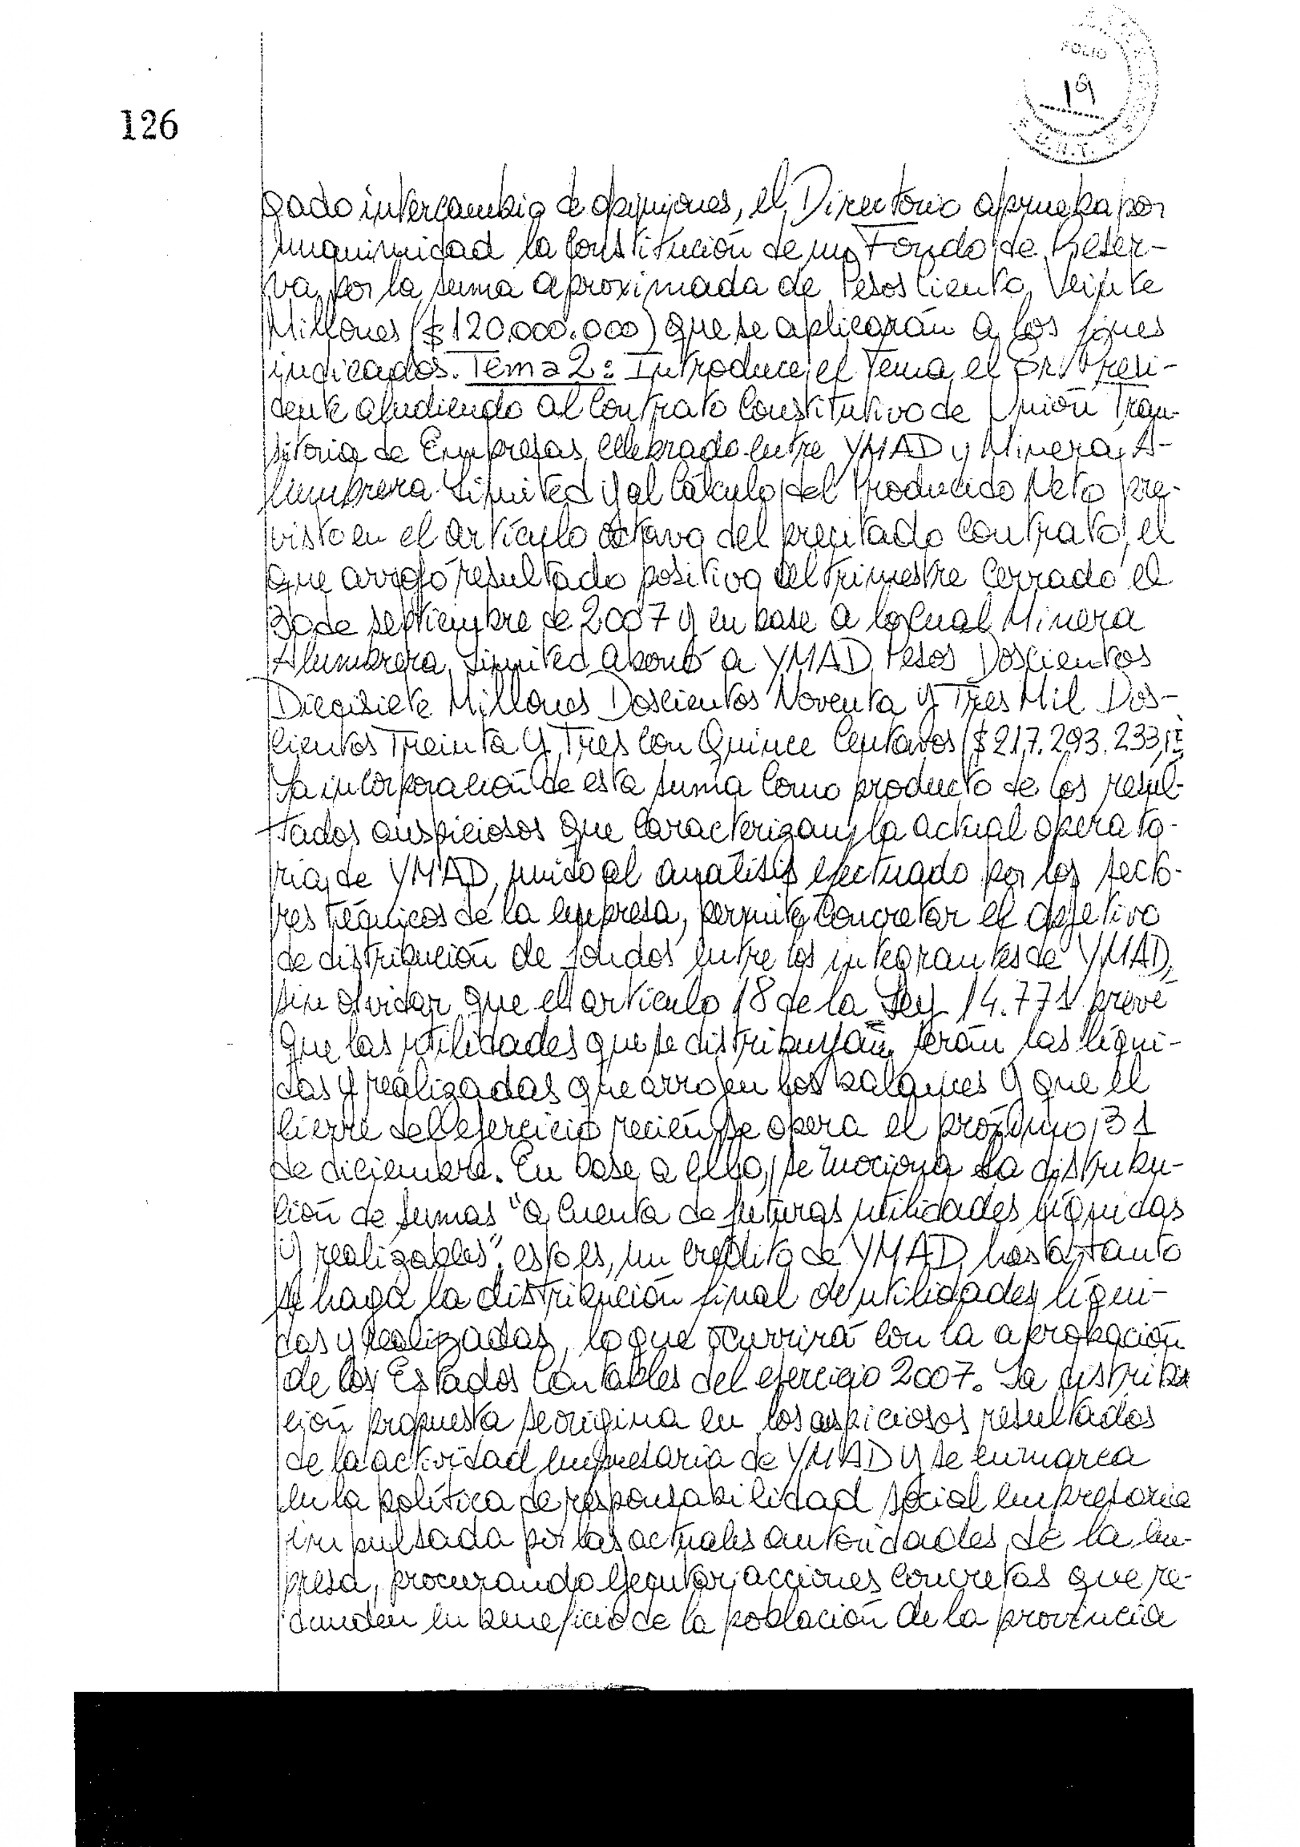 FOLIO
19
U.N.T.
126
gado intercambio de opiniones, el Directorio aprueba por
unanimidad la constitución de un Fondo de Reser-
va por la suma aproximada de Pesos Ciento Veinte
Millones ($120.000.000) que se aplicarán a los fines
indicados. Tema 2: Introduce el tema el Sr. Presi-
dente aludiendo al Contrato Constitutivo de Unión Tran-
sitoria de Empresas, celebrado entre YMAD y Minera A-
lumbrera Limited y al Cálculo del Producido Neto pre-
visto en el artículo octavo del precitado contrato, el
que arrojó resultado positivo el trimestre cerrado el
30 de septiembre de 2007 y en base a lo cual Minera
Alumbrera Limited abonó a YMAD Pesos Doscientos
Diecisiete Millones Doscientos Noventa y Tres Mil Dos-
cientos Treinta y Tres con Quince Centavos ($217.293.233,15
La incorporación de esta suma como producto de los resul-
tados auspiciosos que caracterizan la actual operato-
ria de YMAD, unido al análisis efectuado por los secto-
res técnicos de la empresa, permite concretar el objetivo
de distribución de fondos entre los integrantes de YMAD,
sin olvidar que el artículo 18 de la Ley 14.771 prevé
que las utilidades que se distribuyan serán las líqui-
das y realizadas que arrojen los balances y que el
cierre del ejercicio recién se opera el próximo 31
de diciembre. En base a ello, se mociona la distribu-
ción de sumas "a cuenta de futuras utilidades líquidas
y realizables", esto es, un crédito de YMAD hasta tanto
se haga la distribución final de utilidades líqui-
das y realizadas, lo que ocurrirá con la aprobación
de los Estados Contables del ejercicio 2007. La distribu
ción propuesta se origina en los auspiciosos resultados
de la actividad empresaria de YMAD y se enmarca
en la política de responsabilidad social empresaria
impulsada por las actuales autoridades de la em-
presa, procurando ejecutar acciones concretas que re-
dunden en beneficio de la población de la provincia